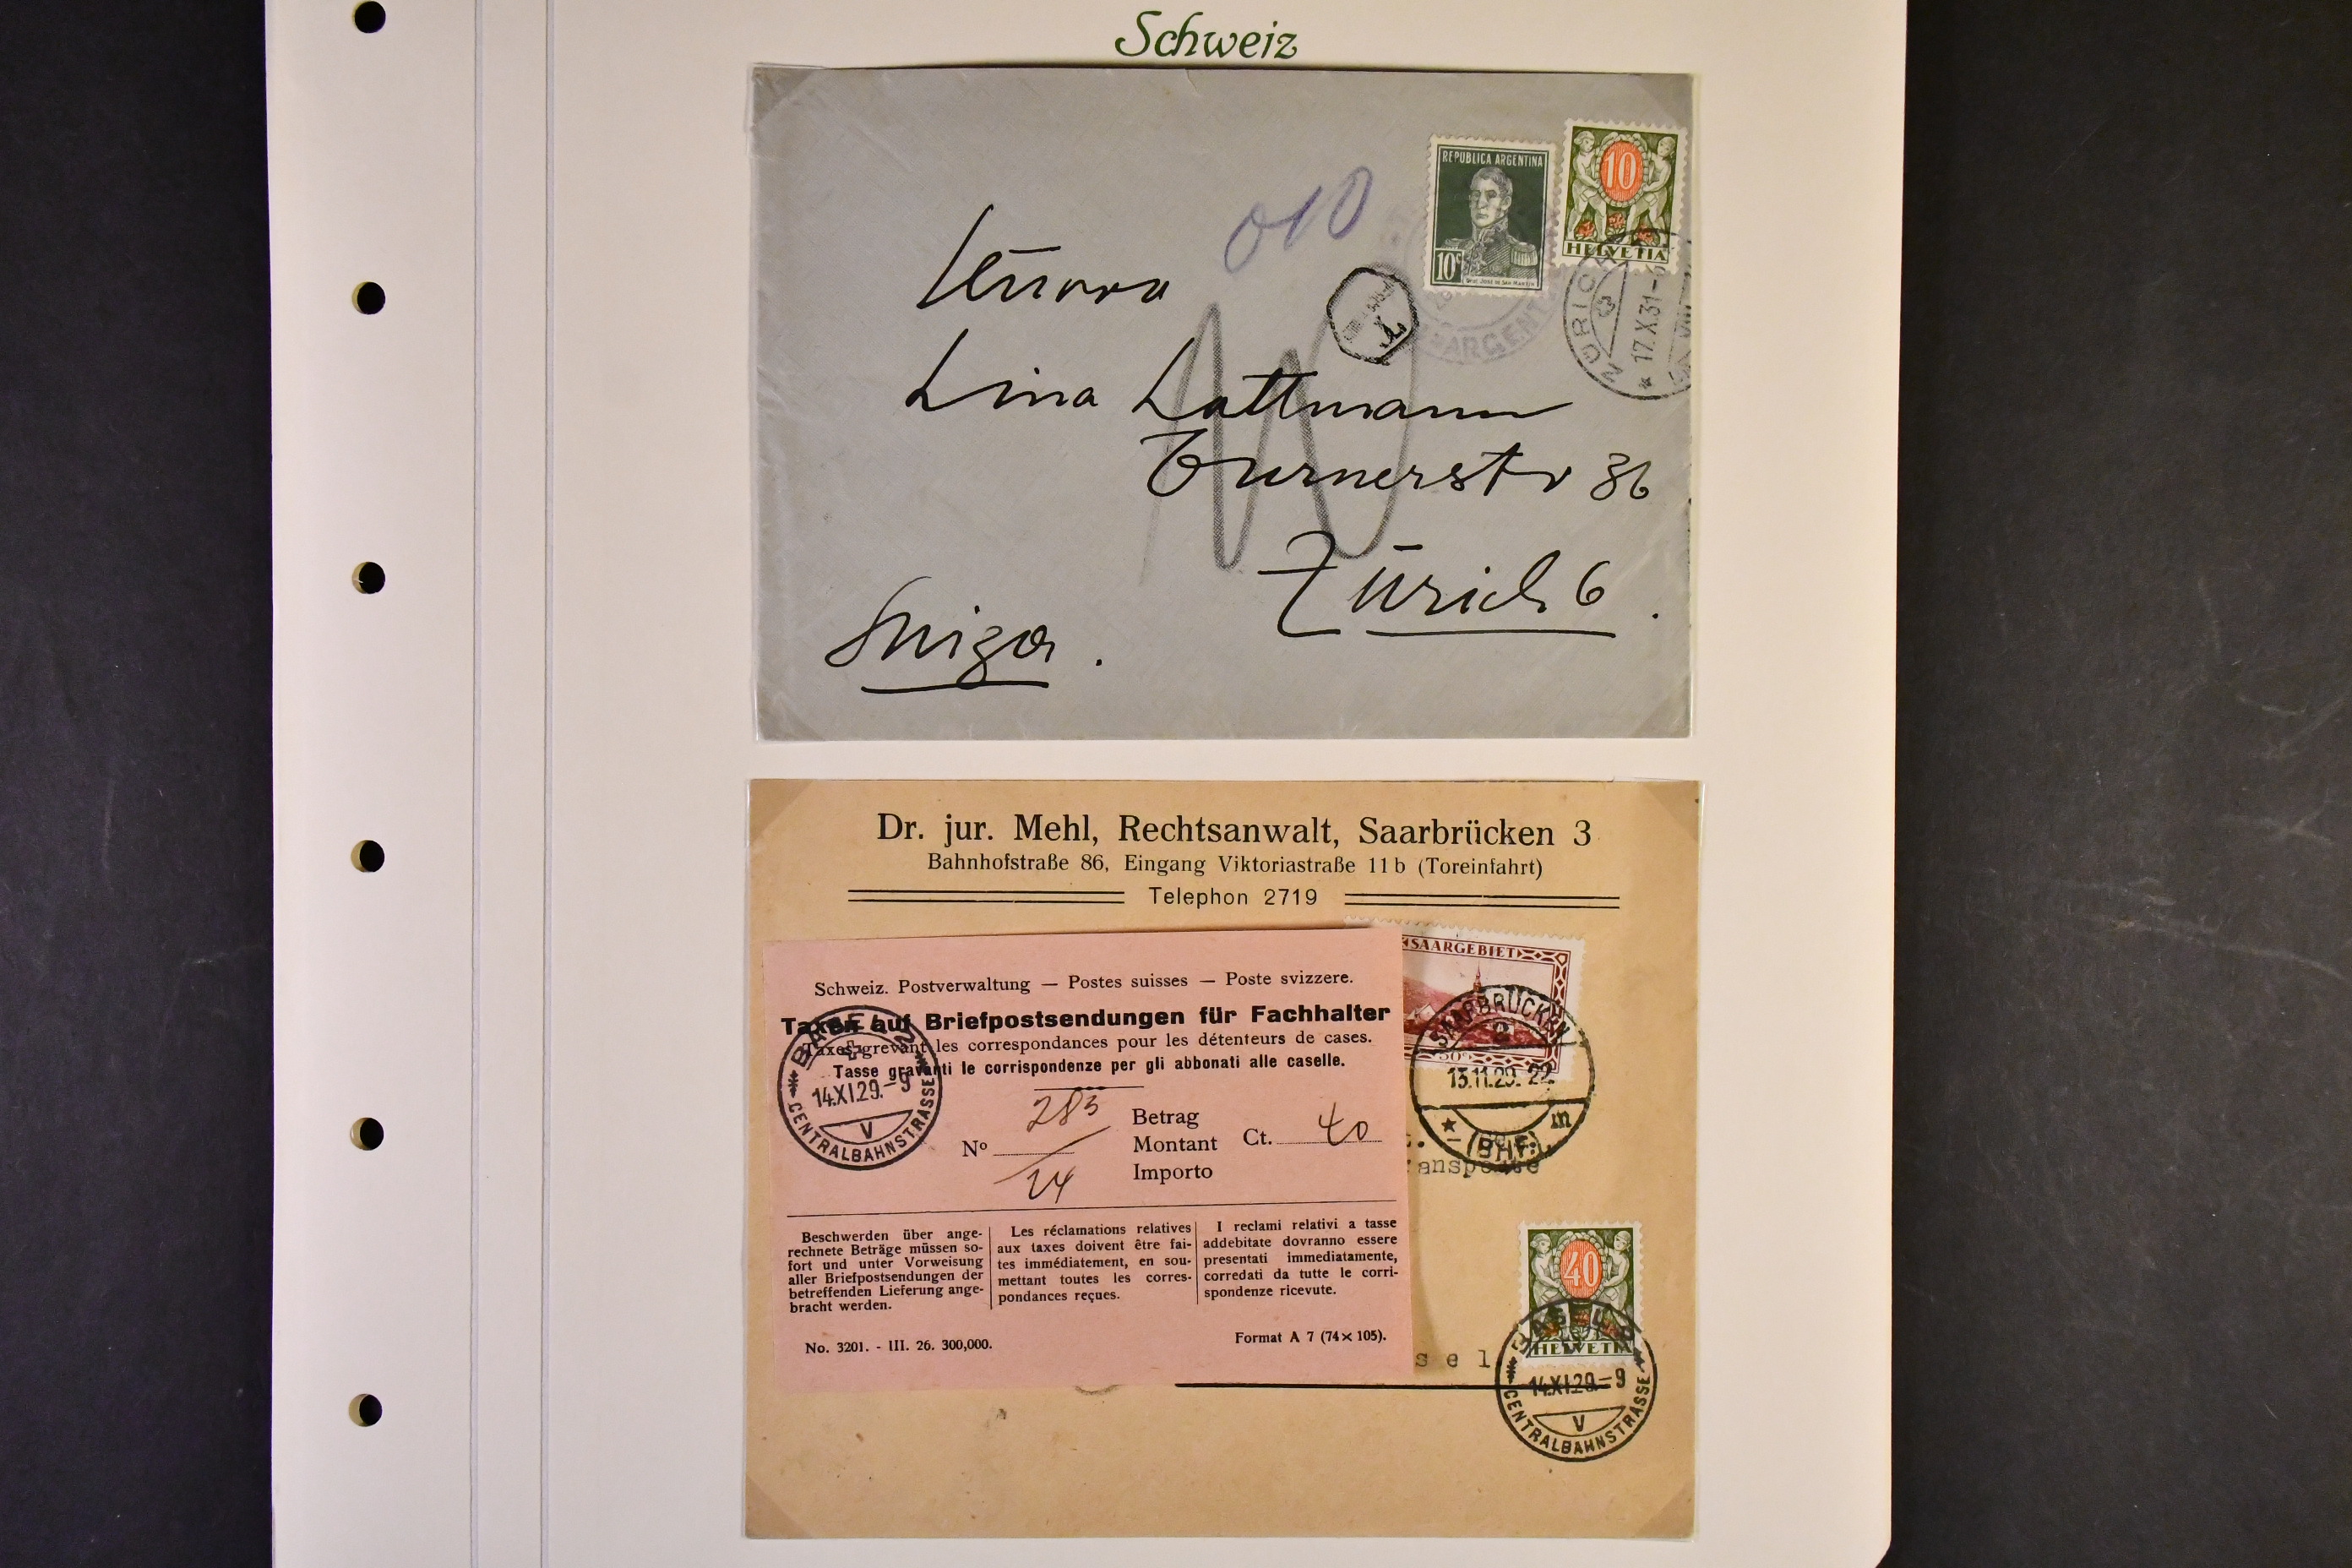 Schweiz
REPUBLICA ARGENTINA
10c
10
HELVETIA
010
T
ARGENT
ZÜRICH
3
17.X.31-
10
Lina Lattmann
Turnerstr 36
Zürich 6.
Suiza.
Dr. jur. Mehl, Rechtsanwalt, Saarbrücken 3
Bahnhofstraße 86, Eingang Viktoriastraße 11 b (Toreinfahrt)
Telephon 2719
SAARGEBIET
SAARBRÜCKEN
2
13.11.29. 22
m
(BHF.)
Schweiz. Postverwaltung — Postes suisses — Poste svizzere.
Taxen auf Briefpostsendungen für Fachhalter
Taxes grevant les correspondances pour les détenteurs de cases.
Tasse gravanti le corrispondenze per gli abbonati alle caselle.
BASEL 2
14.XI.29.-9
V
CENTRALBAHNSTRASSE
No 285
24
Betrag
Montant
Importo
Ct. 40
Beschwerden über ange-
rechnete Beträge müssen so-
fort und unter Vorweisung
aller Briefpostsendungen der
betreffenden Lieferung ange-
bracht werden.
Les réclamations relatives
aux taxes doivent être fai-
tes immédiatement, en sou-
mettant toutes les corres-
pondances reçues.
I reclami relativi a tasse
addebitate dovranno essere
presentati immediatamente,
corredati da tutte le corri-
spondenze ricevute.
No. 3201. - III. 26. 300,000.
Format A 7 (74 × 105).
ansporte
sel
40
HELVETIA
BASEL 2
14.XI.29.-9
V
CENTRALBAHNSTRASSE